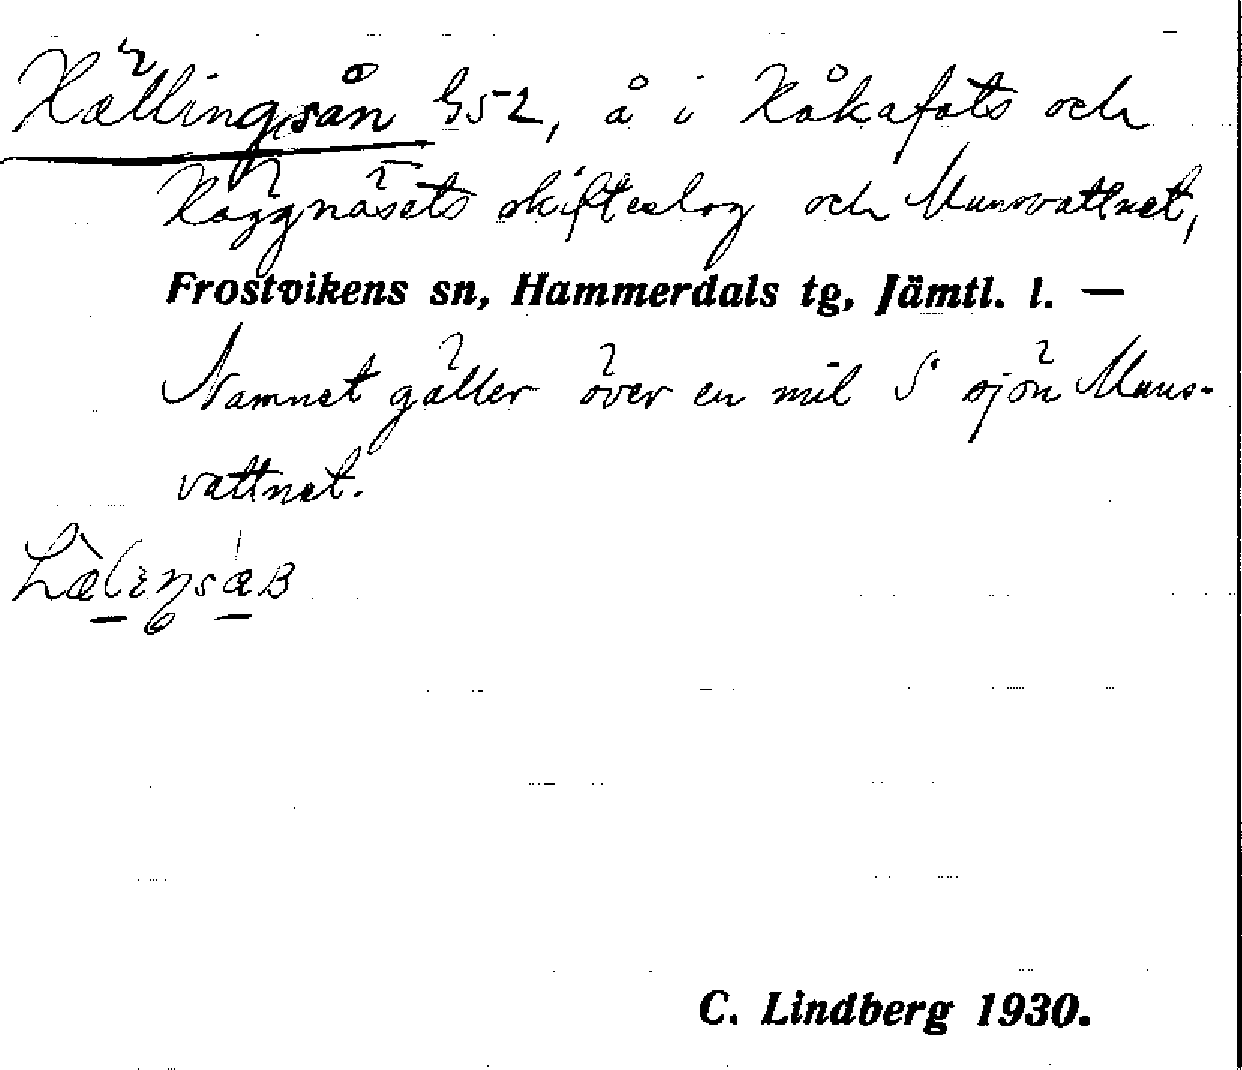 Källingsån G52, å i Kåkafots och
Raggnäsets skifteslog och Munsvattnet,
Frostvikens sn, Hammerdals tg, Jämtl. l. —
Namnet gäller över en mil S sjön Muns-
vattnet.
C. Lindberg 1930.